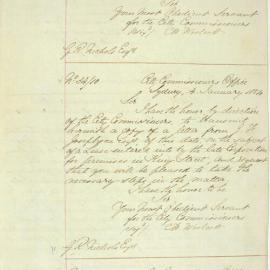 Sir
Your Most Obedient Servant
for the City Commissioners
C. H. Woolcott
G. R. Nichols Esqr
No 54/10 City Commissioners Office
Sydney, 4 January 1854
Sir
I have the honor by direction
of the City Commissioners to transmit
herewith a copy of a letter from J. G.
Esqr of this date on the subject
of a Lease entered into by the late Corporation
for premises in King Street, and request
that you will be pleased to take the
necessary steps in the matter
I have the honor to be
Sir
Your Most Obedient Servant
for the City Commissioners
C. H. Woolcott
G. R. Nichols Esqr